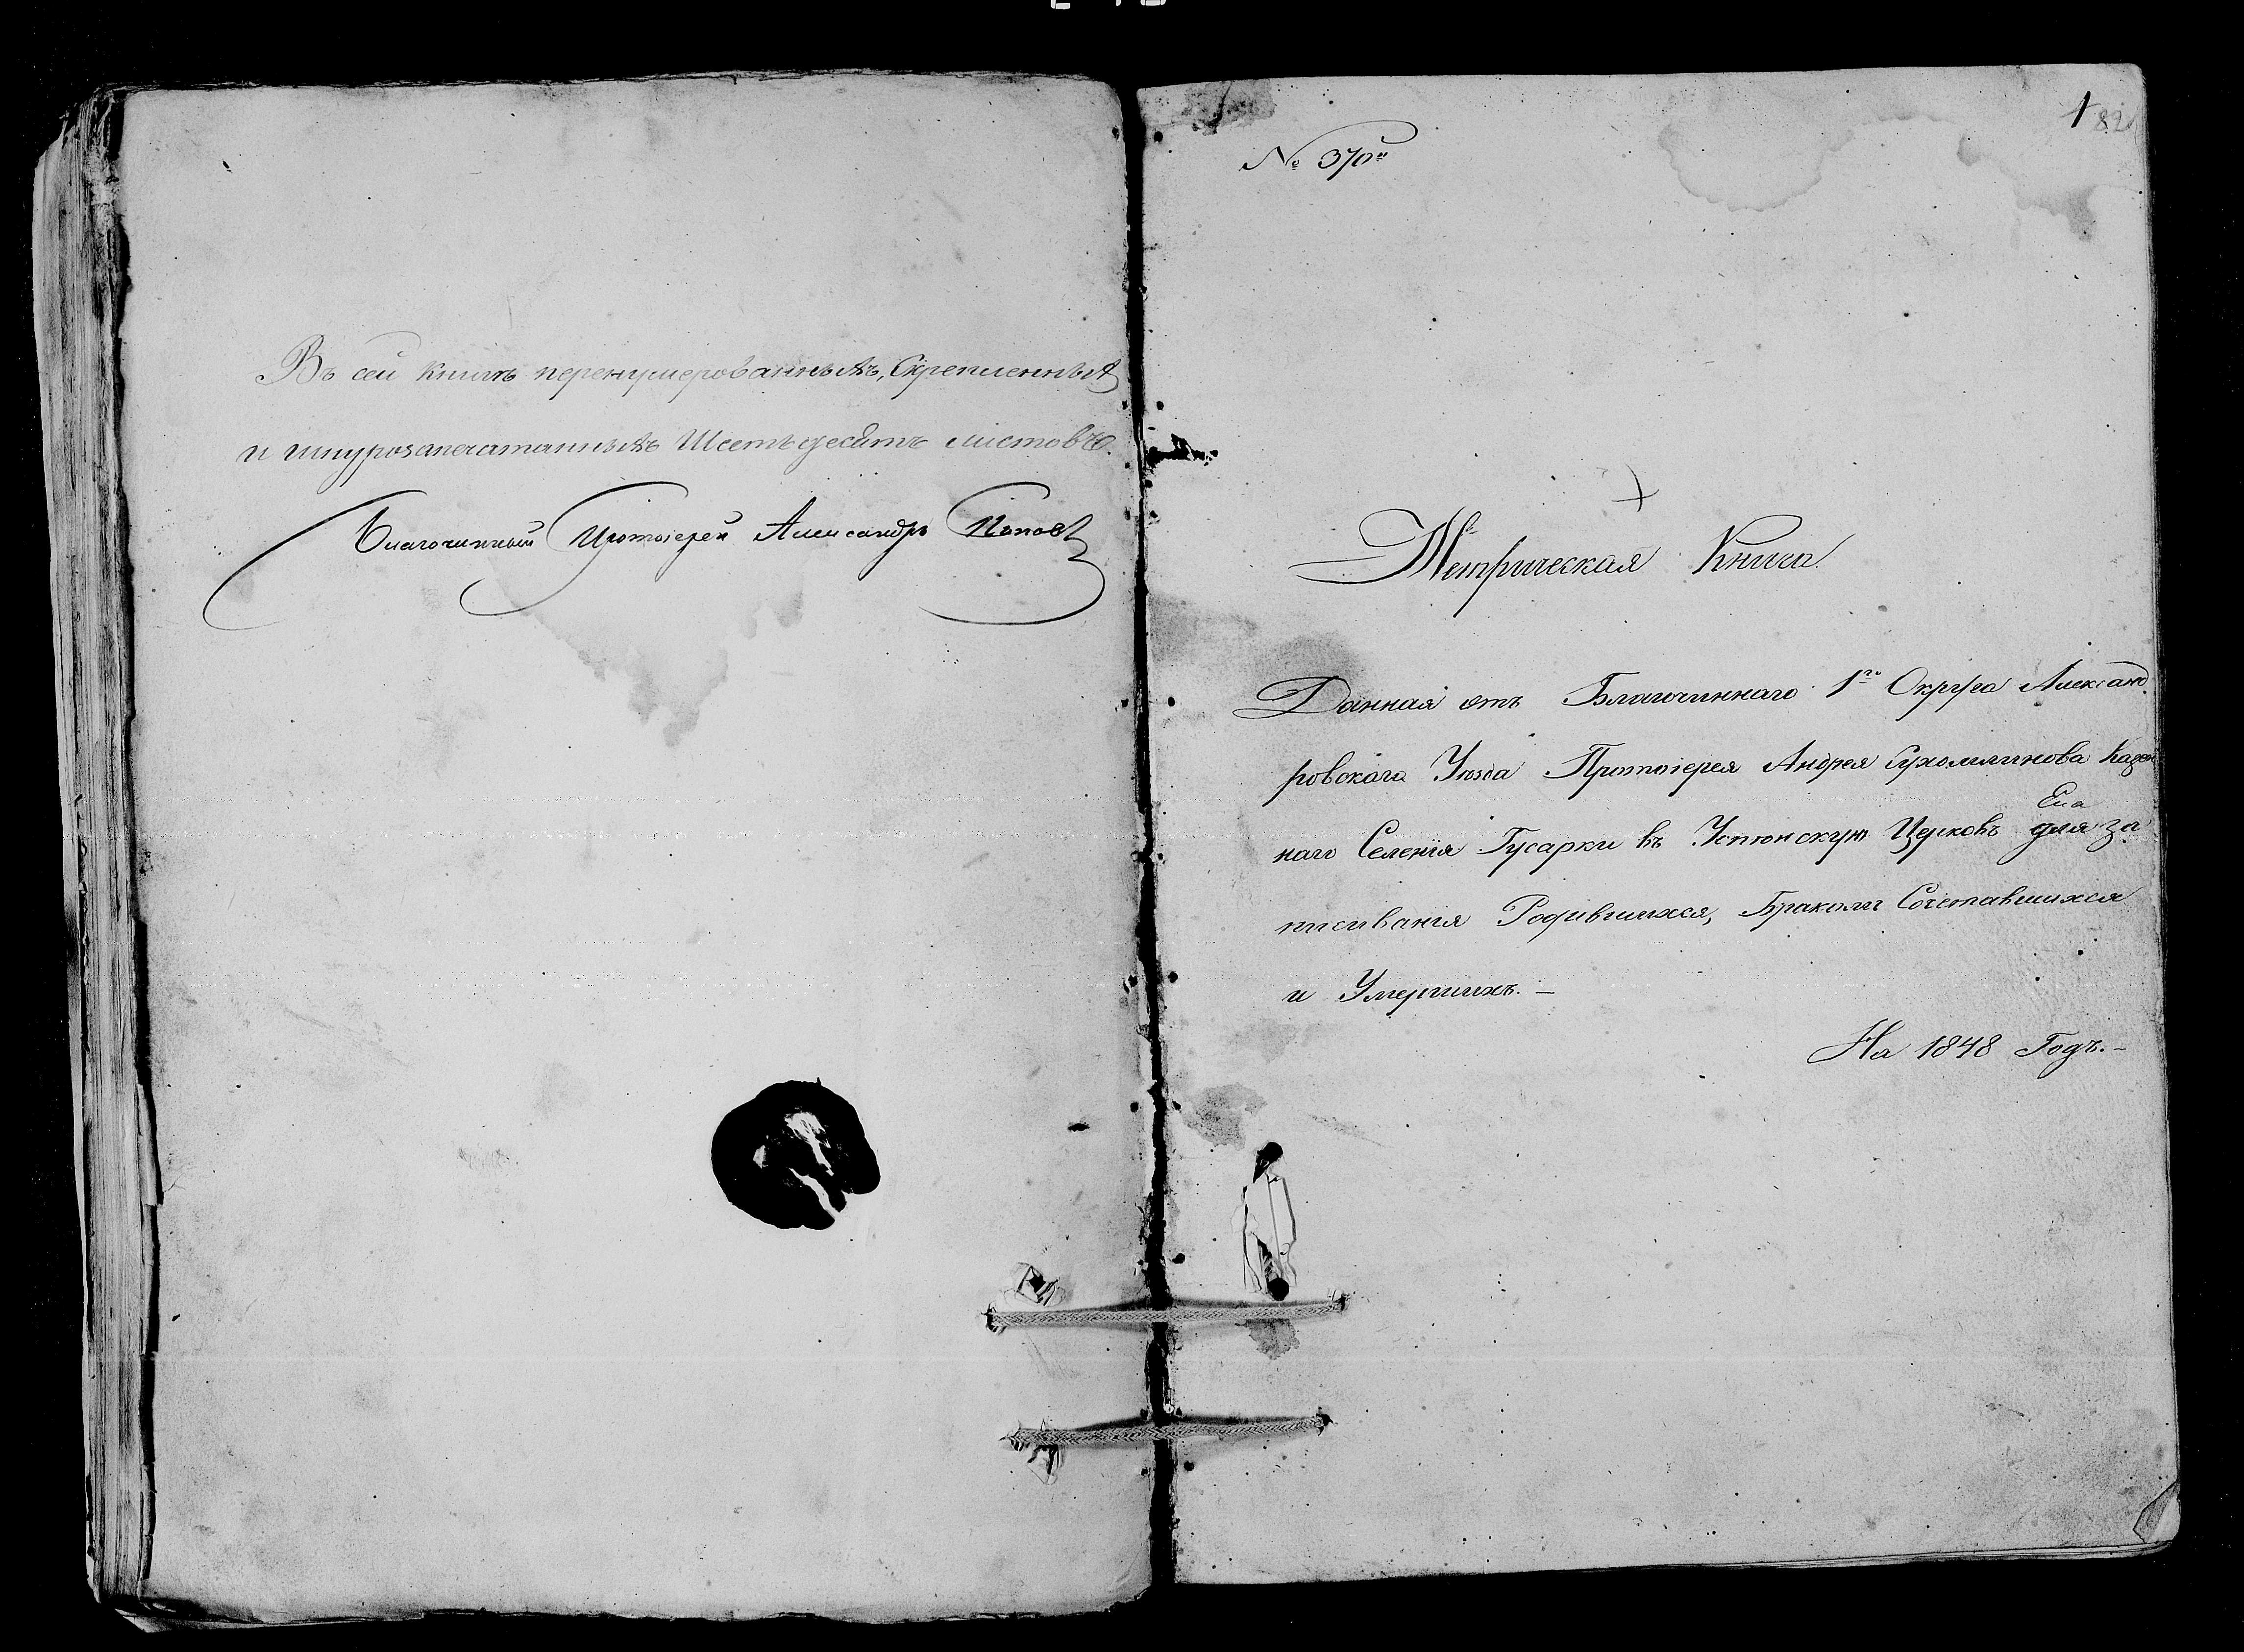 Въ сей книгѣ перенумерованныхъ, Скрепленныхъ
и шнурозапечатанныхъ Шестьдесятъ листовъ.
Благочинный Протоіерей Александръ Поповъ
1 82
№ 370й
Метрическая Книга
Данная отъ Благочиннаго 1го Округа Александ
ровскаго Уѣзда Протоіерея Андрея Сухомлинова Казен
наго Селенія Гусарки въ Успенскую Церковь для за
писиванія Родившихся, Бракомъ Сочетавшихся
и Умершихъ. —
На 1848 Годъ. —